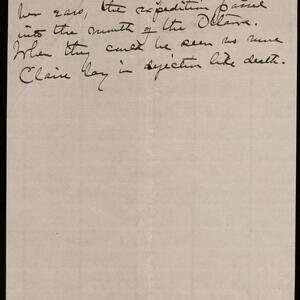 her ears, the expedition passed
into the mouth of the
When they could be seen no more
Claire lay in dejection like death.